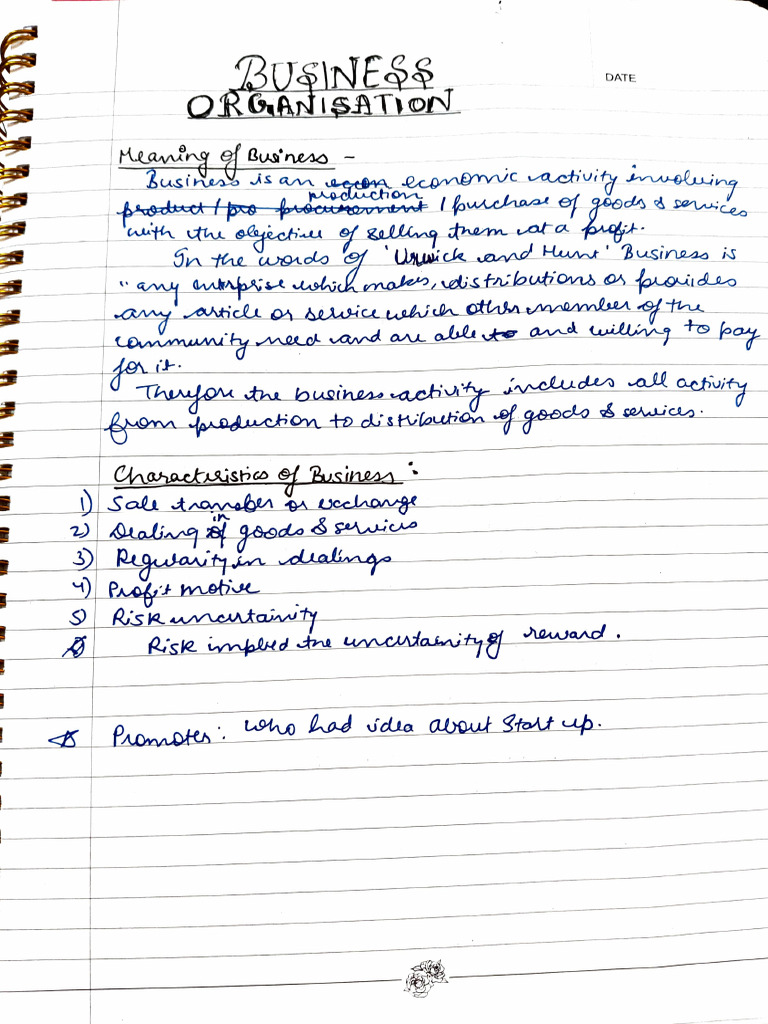 BUSINESS
DATE
ORGANISATION
Meaning of Business -
Business is an econ economic activity involving
production
product / pro procurement / purchase of goods & services
with the objective of selling them at a profit.
In the words of 'Urwick and Hunt' Business is
"any enterprise which makes, distributions or provides
any article or service which other member of the
community need and are able to and willing to pay
for it.
Therefore the business activity includes all activity
from production to distribution of goods & services.
Characteristics of Business :
1) Sale transfer or exchange
in
2) Dealing of goods & services
3) Regularity in dealings
4) Profit motive
5) Risk uncertainity
Risk implied the uncertainity of reward.
Promoter: who had idea about Start up.